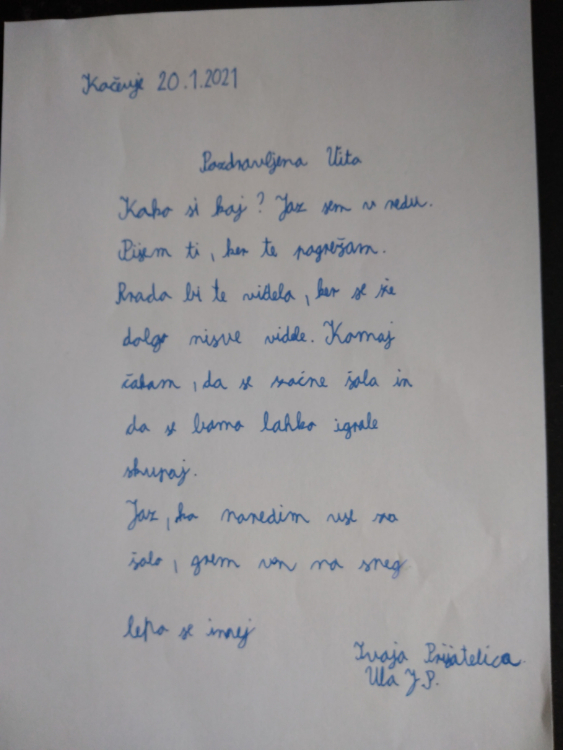 Kačevje 20.1.2021
Pozdravljena Vita
Kako si kaj? Jaz sem v redu.
Pišem ti, ker te pogrešam.
Rrada bi te videla, ker se že
dolgo nisve videle. Komaj
čakam, da se začne šola in
da se bomo lahko igrale
skupaj.
Jaz, ko naredim vse za
šolo, grem ven na sneg
lepo se imej
Tvoja Prijatelica
Ula J.P.